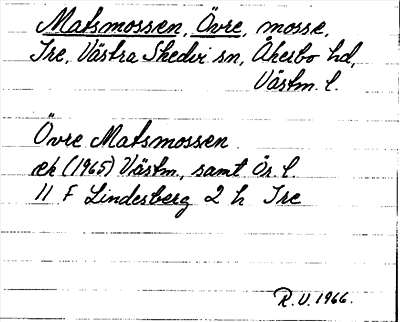 Matsmossen, Övre, mosse,
Tre, Västra Skedvi sn, Åkerbo hd,
Västm. l.
Övre Matsmossen
ek (1965) Västm., samt Ör. l.
11 F Lindesberg 2 h Tre
R.U. 1966.